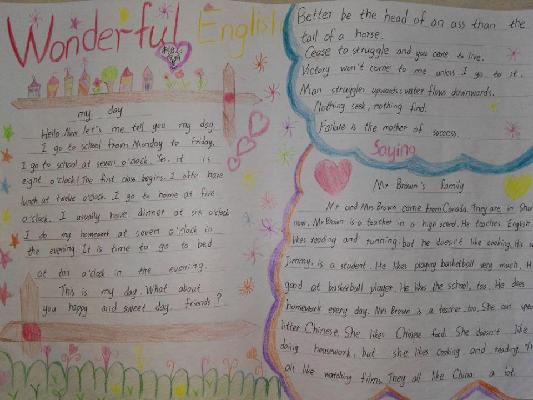 Wonderful English
my day
Hello. Now let's me tell you my day.
I go to school from Monday to Friday.
I go to school at seven o'clock. So, it is
eight o'clock! The first class begins. I often have
lunch at twelve o'clock. I go to home at five
o'clock. I usually have dinner at six o'clock
I do my homework at seven o'clock in
the evening. It is time to go to bed
at ten o'clock in the evening.
This is my day. What about
you happy and sweet day, friends?
Better be the head of an ass than the
tail of a horse.
Cease to struggle and you cease to live.
Victory won't come to me unless I go to it.
Man struggles upwards; water flows downwards.
Nothing seek, nothing find.
Failure is the mother of success.
Saying
Mr Brown's family
Mr and Mrs Brown come from Canada. They are in
now. Mr Brown is a teacher in a high school. He teaches English.
likes reading and running but he doesn't like cooking. His
Jimmy, is a student. He likes playing basketball very much.
good at basketball player. He likes the school, too. He does
homework every day. Mrs Brown is a teacher, too. She can
little Chinese. She likes Chinese food. She doesn't like
doing homework, but she likes cooking and reading.
all like watching films. They all like China a lot.